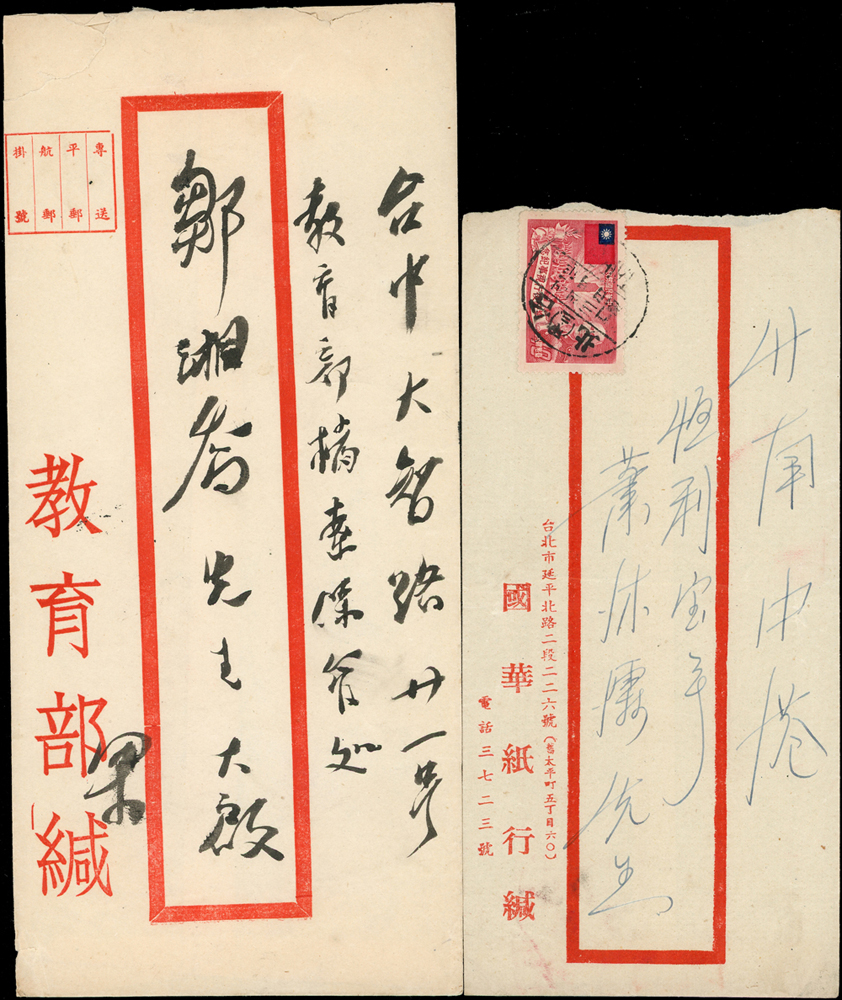 台中大智路廿一號
教育部檔案保管處
鄒湘喬先生大啟
教育部緘
專送
平郵
航郵
掛號
竹南中港
恒利宝号
蕭
先生
台北市延平北路二段二二六號(舊太平町五丁目六〇)
國華紙行緘
電話三七二三號